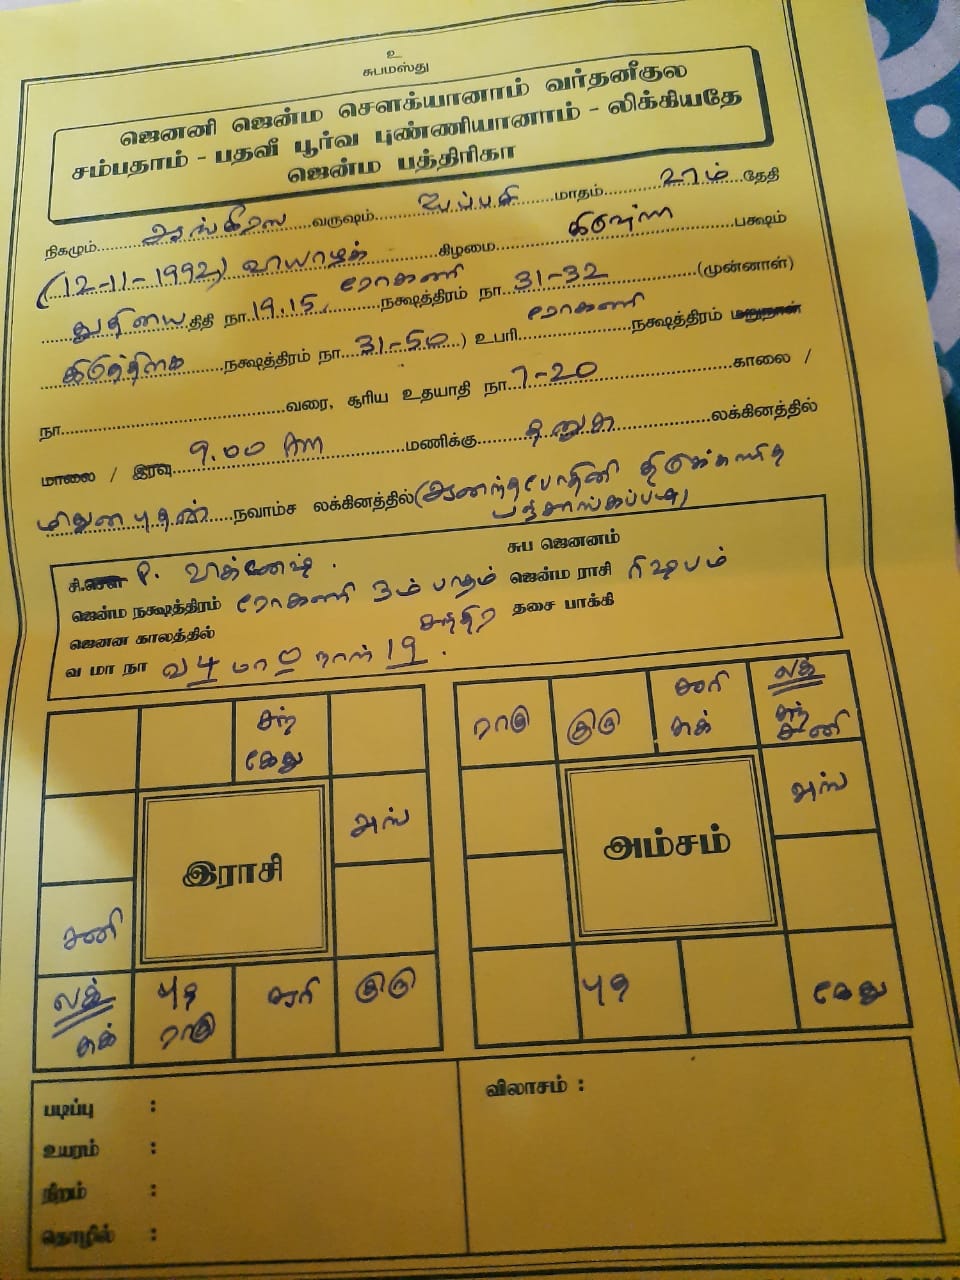 உ
சுபமஸ்து
ஜெனனி ஜென்ம சௌக்யானாம் வர்தனீகுல
சம்பதாம் - பதவீ பூர்வ புண்ணியானாம் - லிக்கியதே
ஜென்ம பத்திரிகா
நிகழும் ஆங்கீரஸ வருஷம் ஐப்பசி மாதம் 27ம் தேதி
(12-11-1992) வியாழக் கிழமை கிருஷ்ண பக்ஷம்
துதியை திதி நா 19.15, ரோகணி நக்ஷத்திரம் நா 31-32 (முன்னாள்)
கிருத்திகை நக்ஷத்திரம் நா 31-50) உபரி ரோகணி நக்ஷத்திரம் மறுநாள்
நா வரை, சூரிய உதயாதி நா 7-20 காலை /
மாலை / இரவு 9.00 AM மணிக்கு தனுசு லக்கினத்தில்
மிதுன புதன் நவாம்ச லக்கினத்தில் (ஆனந்தபோதினி திருக்கணித
பஞ்சாங்கப்படி)
சி.சௌ P. விக்னேஷ். சுப ஜெனனம்
ஜென்ம நக்ஷத்திரம் ரோகணி 3ம் பாதம் ஜென்ம ராசி ரிஷபம்
ஜெனன காலத்தில் சந்திர தசை பாக்கி
வ மா நா வ 4 மா 0 நாள் 19.
சந்
கேது
அங்
இராசி
சனி
லக்
சுக்
புத
ராகு
சூரி
குரு
ராகு
குரு
சூரி
சுக்
லக்
சந்
சனி
அங்
அம்சம்
புத
கேது
படிப்பு :
உயரம் :
நிறம் :
தொழில் :
விலாசம் :